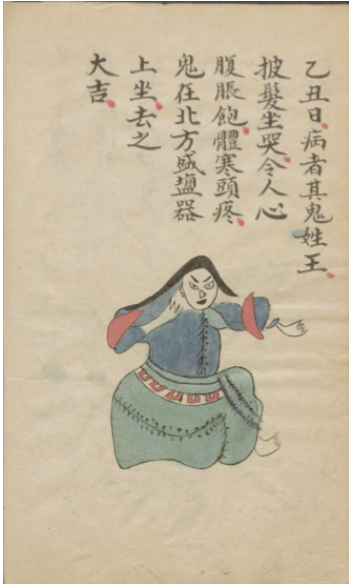 乙丑日病者其鬼姓王
披髮坐哭令人心
腹脹飽體寒頭疼
鬼在北方盛鹽器
上坐去之
大吉